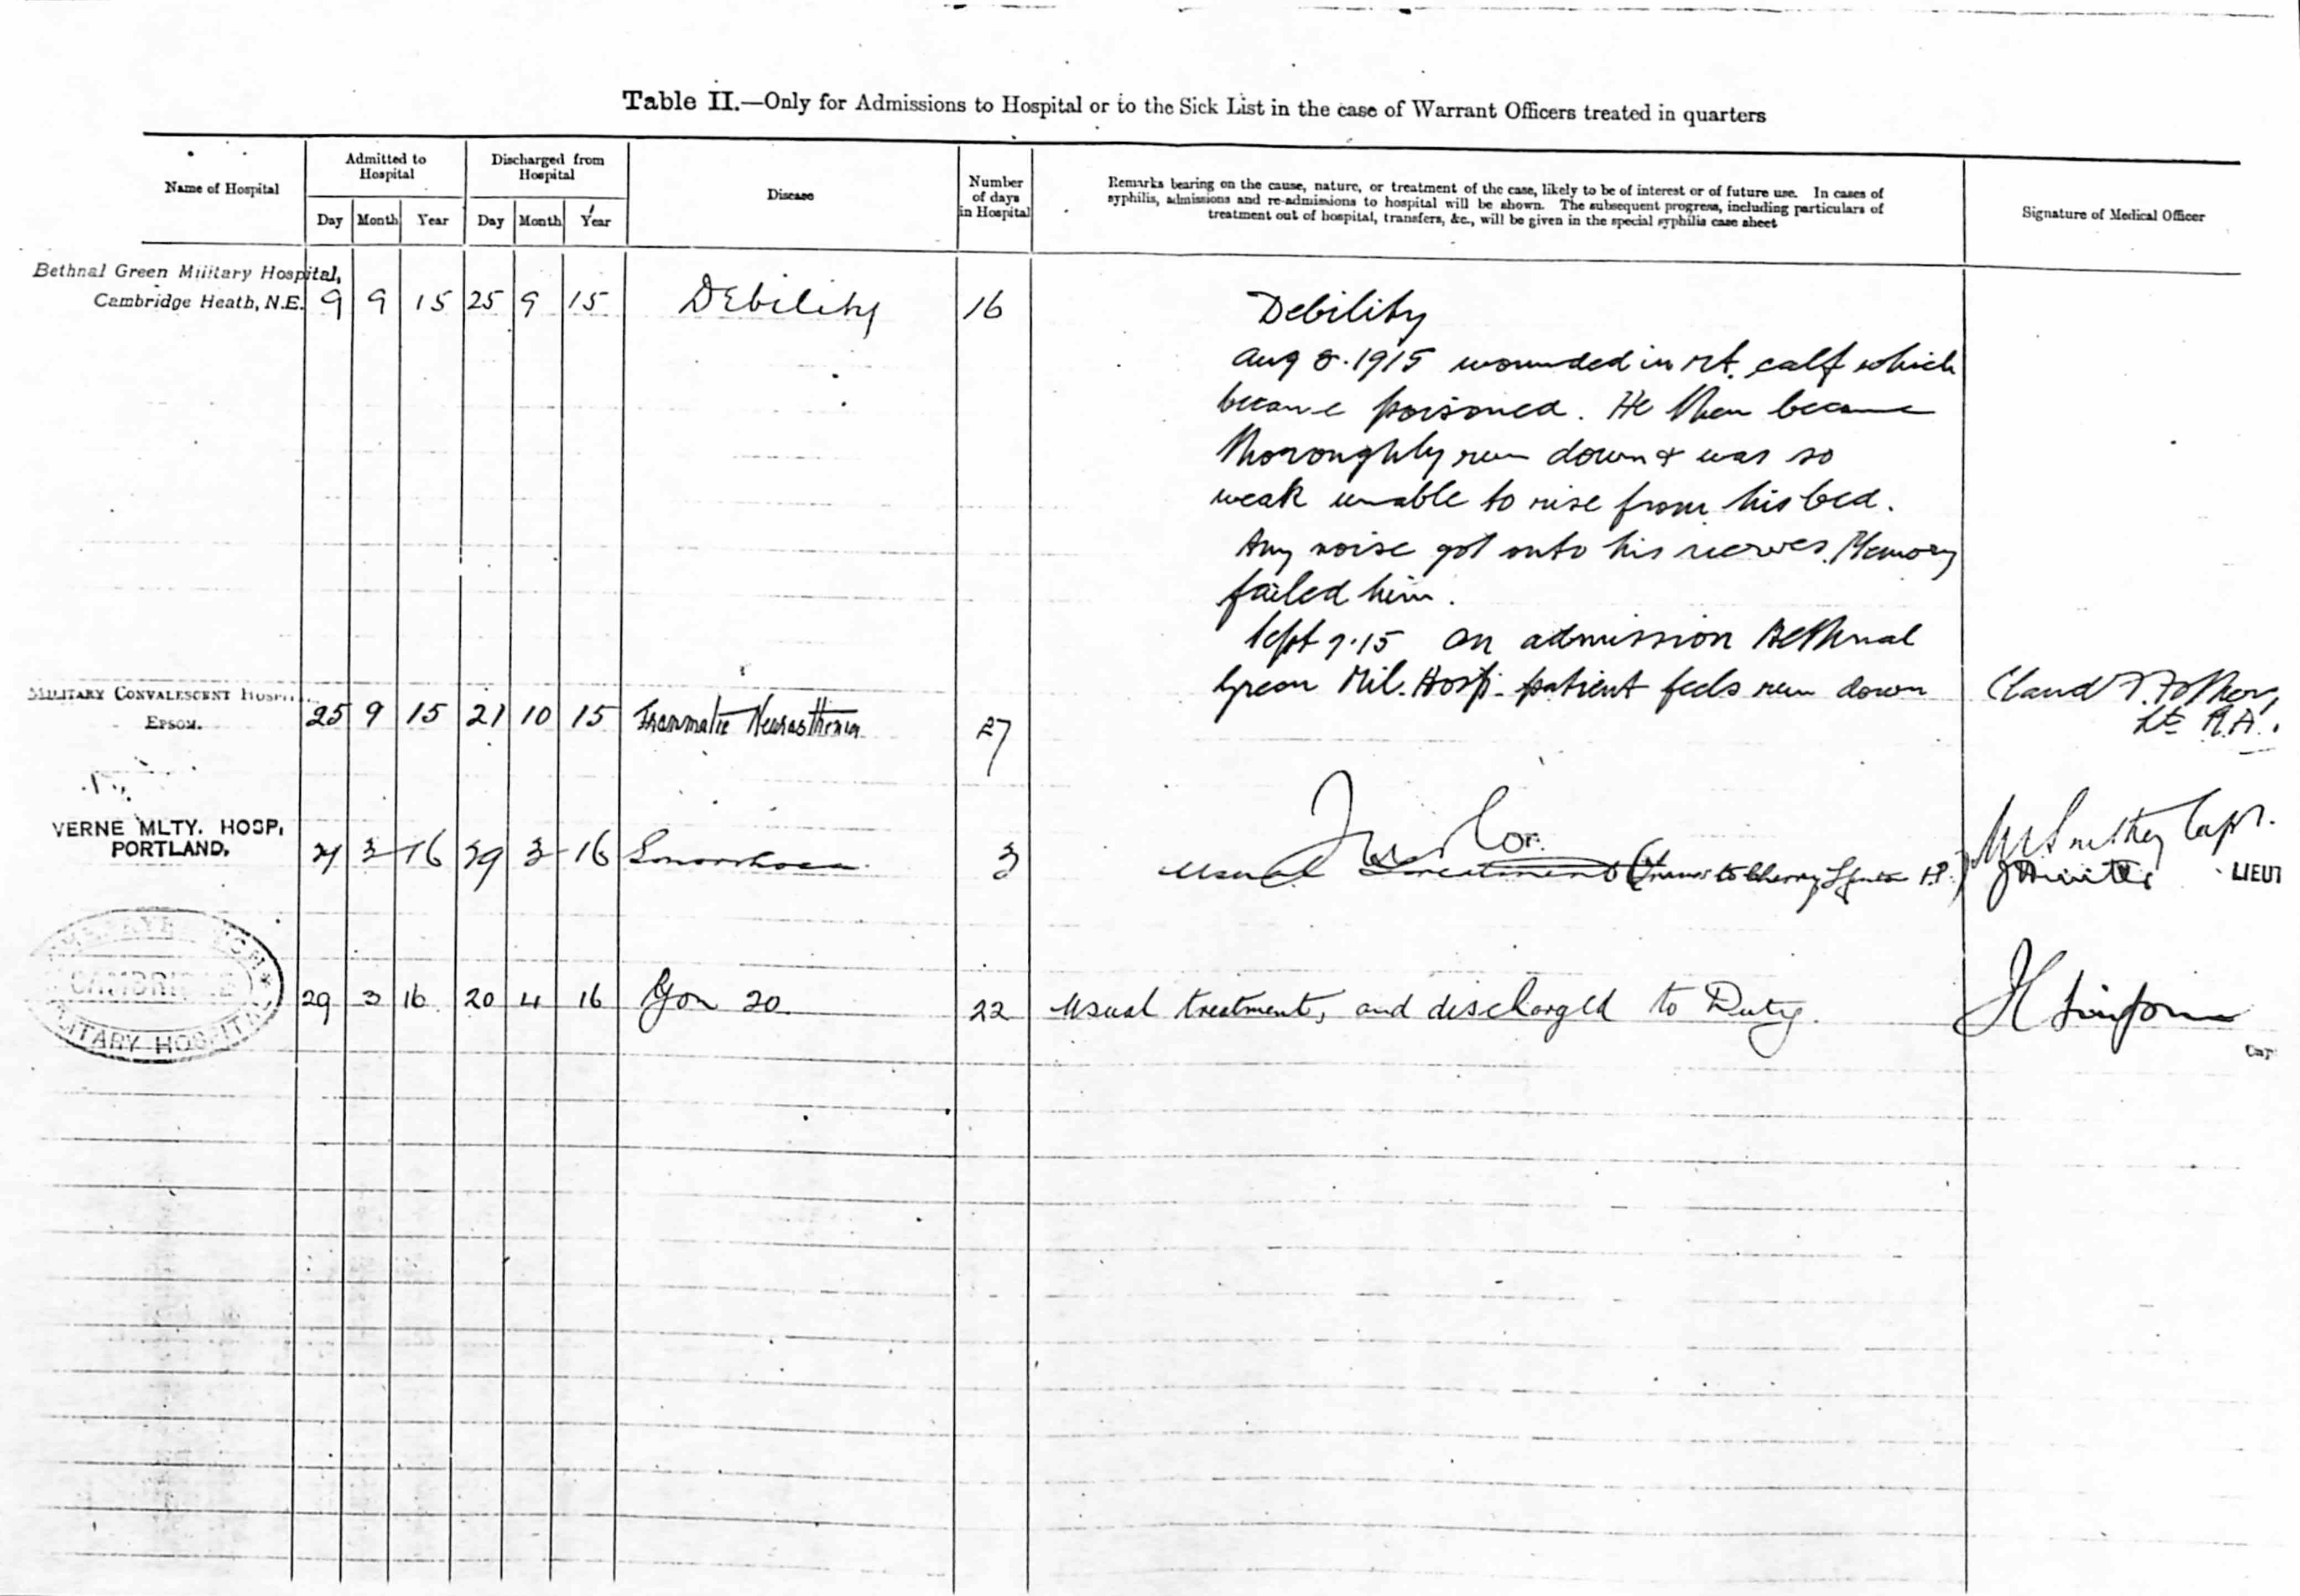 Table II.—Only for Admissions to Hospital or to the Sick List in the case of Warrant Officers treated in quarters
Name of Hospital
Admitted to Hospital
Discharged from Hospital
Disease
Number of days in Hospital
Remarks bearing on the cause, nature, or treatment of the case, likely to be of interest or of future use. In cases of
syphilis, admissions and re-admissions to hospital will be shown. The subsequent progress, including particulars of
treatment out of hospital, transfers, &c., will be given in the special syphilis case sheet
Signature of Medical Officer
Day Month Year Day Month Year
Bethnal Green Military Hospital,
Cambridge Heath, N.E. 9 9 15 25 9 15 Debility 16 Debility
Aug 8. 1915 wounded in rt. calf which
became poisoned. He then became
thoroughly run down & was so
weak unable to rise from his bed.
Any noise got onto his nerves. Memory
failed him.
Sept 9.15 On admission Bethnal
Green Mil. Hosp. patient feels run down
Military Convalescent
Epsom. 25 9 15 21 10 15 Traumatic Neurasthenia 27
Lt
Capt.
VERNE MLTY. HOSP,
PORTLAND, 3 16 29 3 16 3 Usual treatment LIEUT
CAMBRIDGE
MILITARY HOSPITAL
29 3 16 20 4 16 Gon 20 22 Usual treatment, and discharged to Duty.